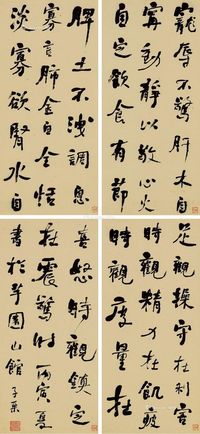 寵辱不驚肝木自
甯動靜以敬心火
自定飲食有節
脾土不洩調息
寡言肺金自全恬
淡寡欲腎水自
足觀操守在利害
時觀精力在飢疲
時觀度量在
喜怒時觀鎮定
在震驚時 丙寅夏
書於半園山館